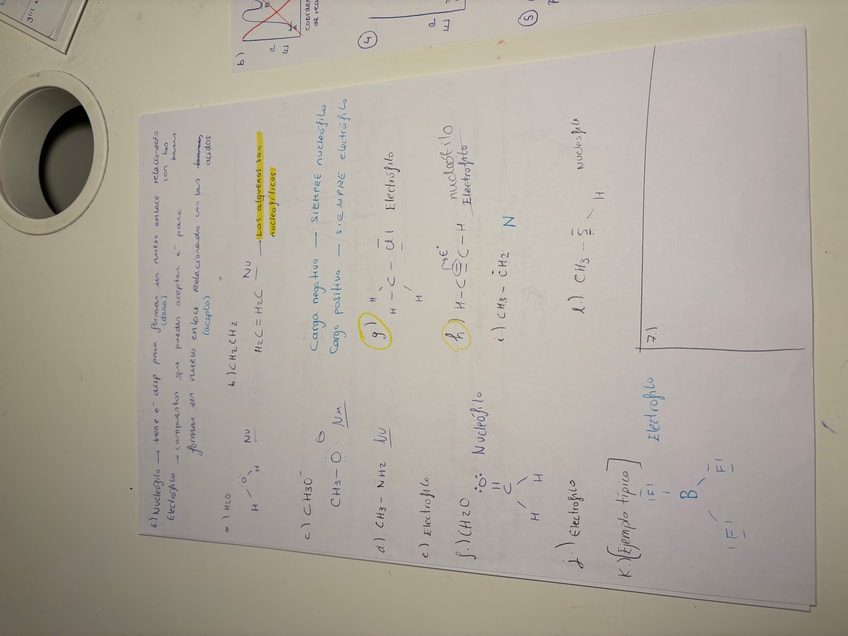 6) Nucleófilo → tiene e⁻ disp para formar un nuevo enlace relacionado con las bases
(dona)
Electrófilo → compuestos que pueden aceptar e⁻ para formar un nuevo enlace. Relacionado con las ácidos
(acepta)
a) H2O
H O H Nu
b) CH2CH2
H2C = H2C Nu → Los alquenos son nucleofílicos
c) CH3O⁻
CH3 – O ⊖ Nu
Carga negativa → SIEMPRE nucleófilo
Carga positiva → SIEMPRE electrófilo
d) CH3 – NH2 Nu
g) H – C – Cl Electrófilo
H
H
e) Electrófilo
h) H – C ≡ C – H nucleófilo
Electrófilo
f.) CH2O Nucleófilo
O
C
H H
i) CH3 – CH2 N
j) Electrófilo
l.) CH3 – S Nucleófilo
H
k) [Ejemplo típico] Electrófilo
F
B
F F
7)
b)
E
4
E
5